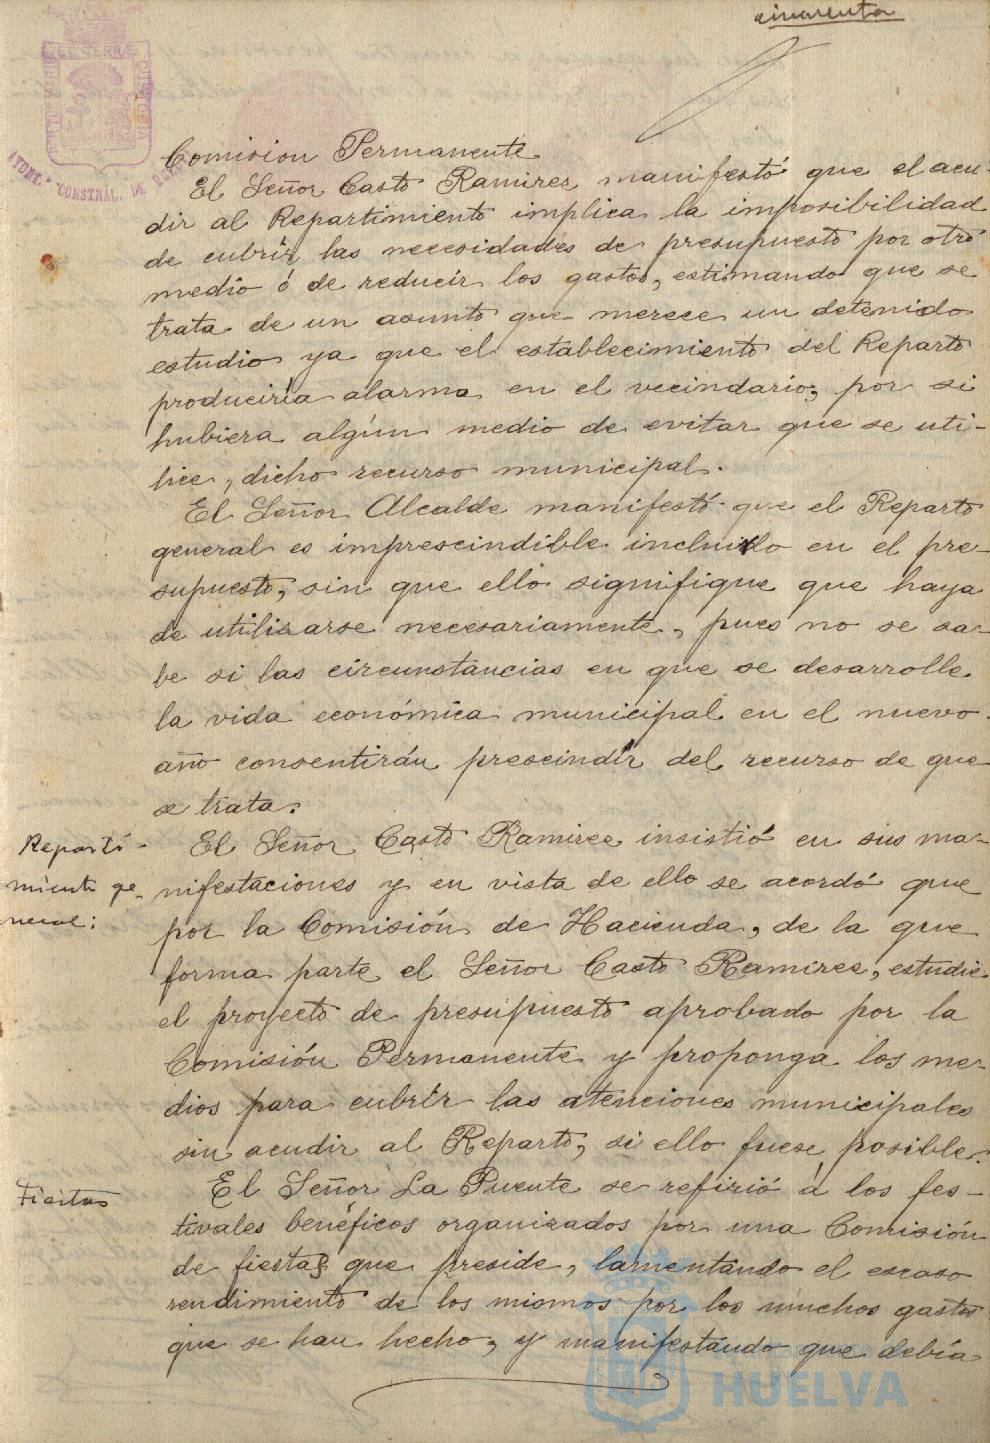 cincuenta
Comision Permanente
El Señor Casto Ramirez manifestó que el acu-
dir al Repartimiento implica la imposibilidad
de cubrir las necesidades de presupuesto por otro
medio ó de reducir los gastos, estimando que se
trata de un asunto que merece un detenido
estudio ya que el establecimiento del Reparto
produciría alarma en el vecindario, por si
hubiera algún medio de evitar que se uti-
lice, dicho recurso municipal.
El Señor Alcalde manifestó que el Reparto
general es imprescindible incluirlo en el pre-
supuesto, sin que ello signifique que haya
de utilizarse necesariamente, pues no se sa-
be si las circunstancias en que se desarrolle
la vida económica municipal en el nuevo
año consentirán prescindir del recurso de que
se trata.
Reparti-
miento ge-
neral:
El Señor Casto Ramirez insistió en sus ma-
nifestaciones y en vista de ello se acordó que
por la Comisión de Hacienda, de la que
forma parte el Señor Casto Ramirez, estudie
el proyecto de presupuesto aprobado por la
Comisión Permanente y proponga los me-
dios para cubrir las atenciones municipales
sin acudir al Reparto, si ello fuese posible.
Fiestas
El Señor La Puente se refirió á los fes-
tivales benéficos organizados por una Comisión
de fiestas que preside, lamentando el escaso
rendimiento de los mismos por los muchos gastos
que se han hecho, y manifestando que debía
HUELVA